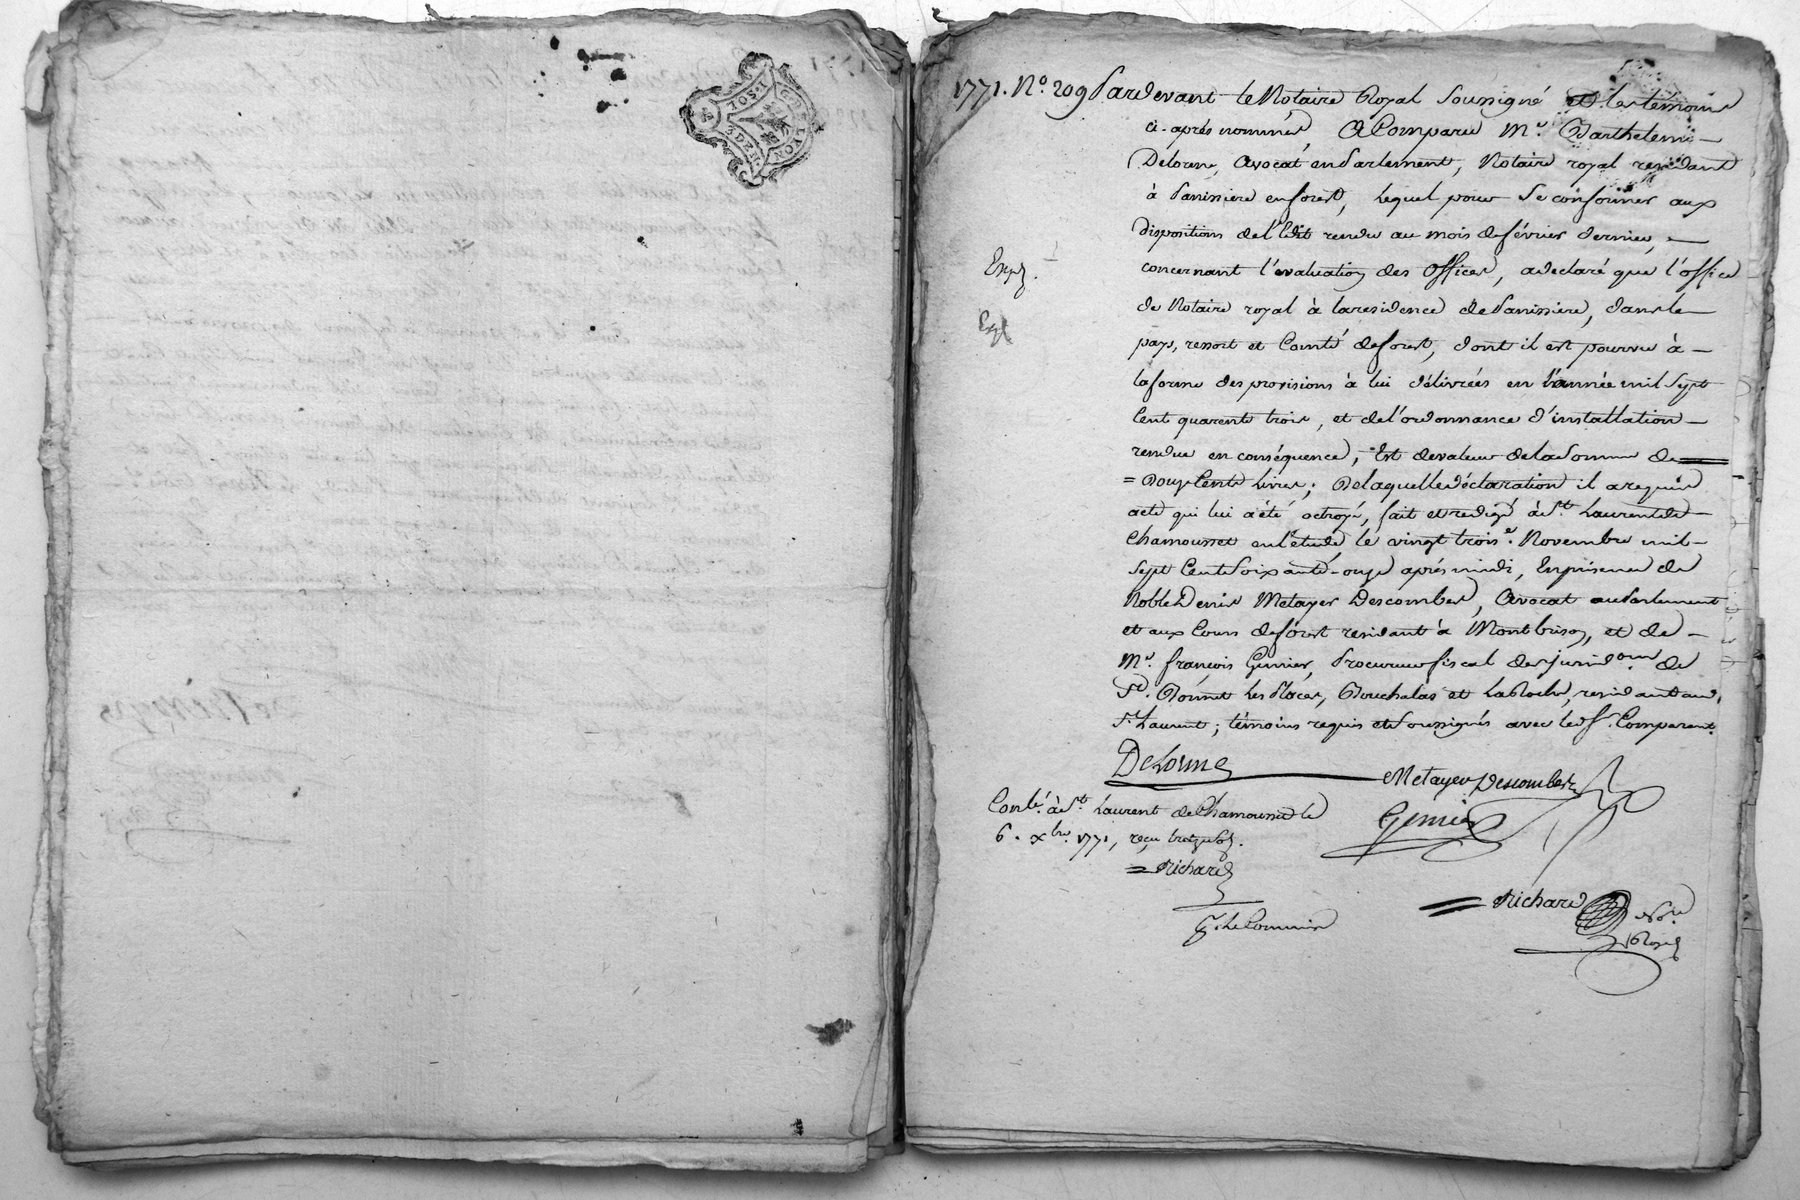 GEN. DE LYON
1771. N.º 209 Pardevant le Notaire Royal soussigné et les temoins
ci-aprés nommés A Comparu M.e Barthelemi
Delorme, Avocat en Parlement, Notaire royal residant
à Panissiere en forest, lequel pour se conformer aux
dispositions de l'Edit rendu au mois de février dernier,
concernant l'evaluation des offices, a declaré que l'office
de Notaire royal à la residence de Panissiere, dans le
pays, ressort et Comté de forest, dont il est pourvu à
la forme des provisions à lui délivrées en l'année mil sept
Cent quarente trois, et de l'ordonnance d'installation
rendue en conséquence, Est de valeur de la somme de
= Douze Cents Livres; De laquelle déclaration il a requis
acte qui lui a été octroyé, fait et redigé à St. Laurent de
Chamousset en l'étude le vingt trois.e Novembre mil
sept Cent soixante-onze aprés midi, En présence de
Noble Denis Metayer Descombes, Avocat au Parlement
et aux Cours de forest residant à Montbrison, et de
M.e françois Gimier, Procureur fiscal des jurid.ons de
St. Bonnet les Places, Pouchalas et La Roche, residant aud.
St. Laurent; témoins requis et soussignés avec led. Sr. Comparant.
Exp.
Exp
Delorme
Metayer Descombes
Gimier
Conlé. à St. Laurent de Chamousset le
6. Xbre. 1771, reçu treize sols.
= Richard
= Richard
Nore.
Royal